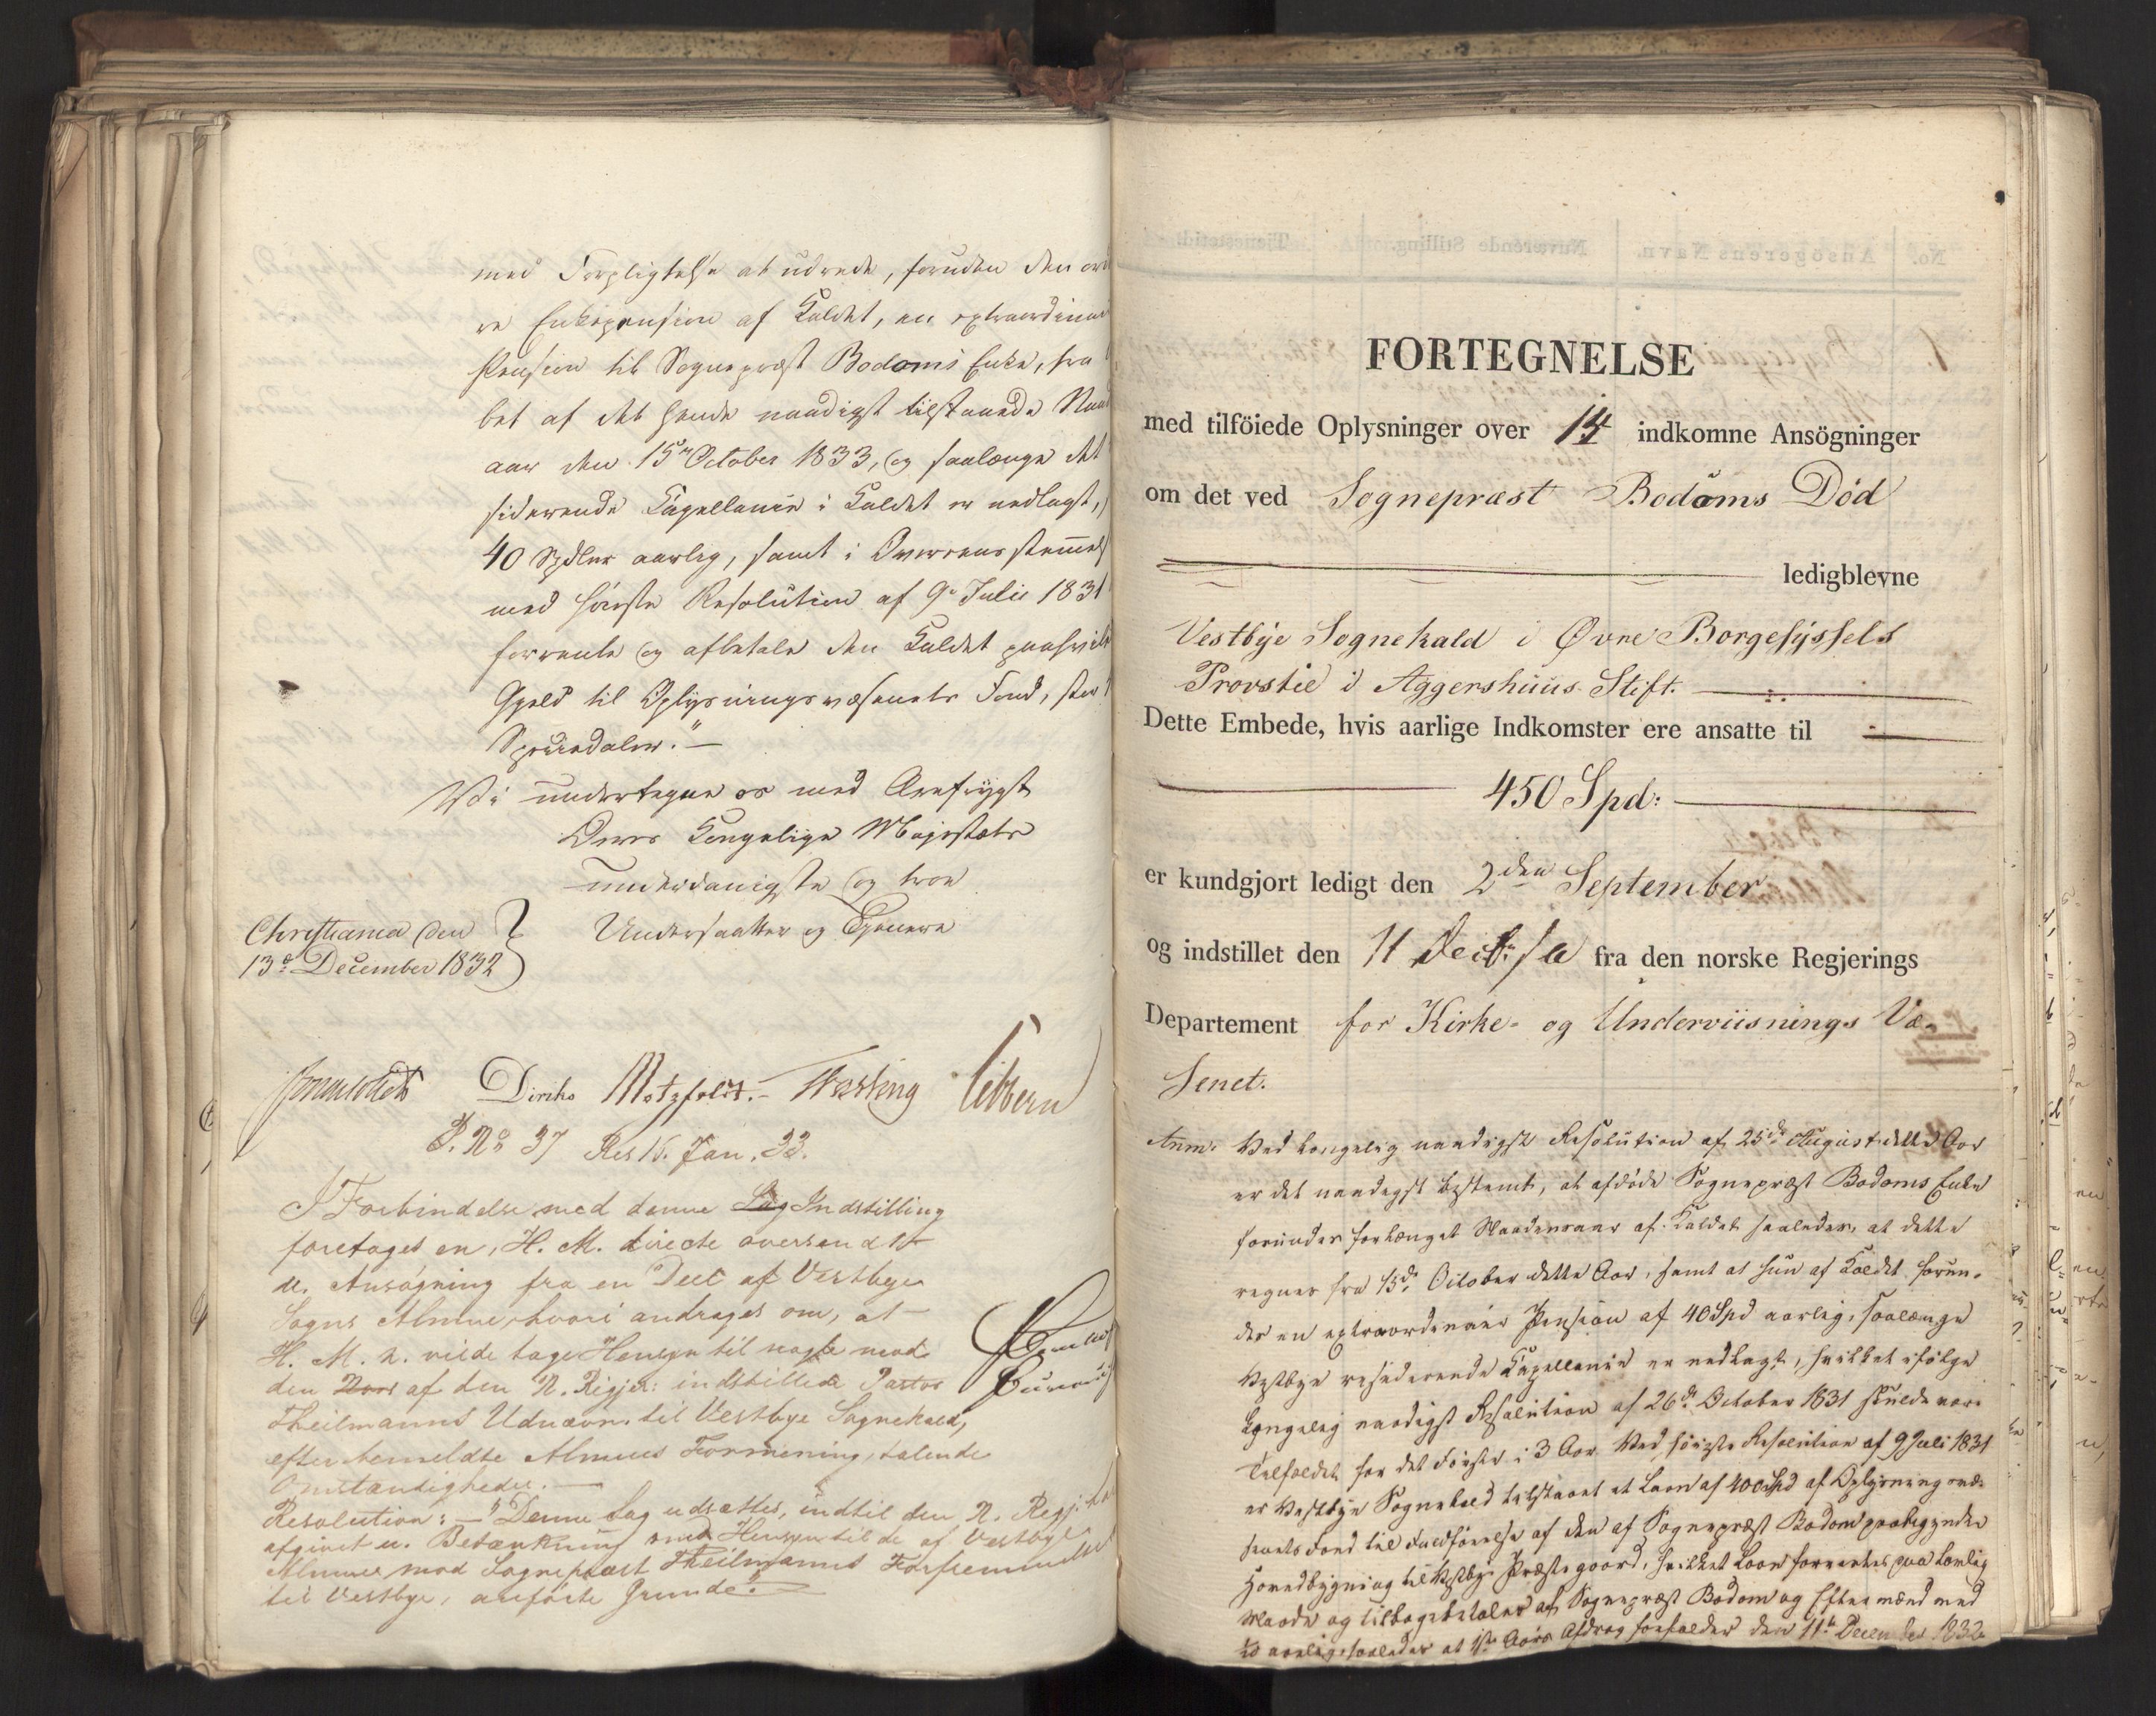 med Forpligtelse at udrede, foruden den ordi
re Enkepension af Kaldet, en extraordinair
Pension til Sognepræst Bodoms Enke, fra
bet af det hende naadigst tilstaaede Naad
aar den 15de October 1833, og saalænge det
siderende Kapellanie i Kaldet er nedlagt,
40 Spdlr aarlig, samt i Overeensstemmels
med høieste Resolution af 9de Julii 1831
forrente og afbetale den Kaldet paahvil
Gjeld til Oplysningsvæsenets Fond, stor
Speciedaler." —
Vi undertegne os med Ærefrygt
Deres Kongelige Majestæts
underdanigste og troe
Undersaatter og Tjenere
Christiania den
13de December 1832
Diriks Motzfeldt. Fasting Sibbern
P. No 37 Res 15. Jan. 33.
I Forbindelse med denne Sag Indstilling
foretages en, H. M. directe oversendt
de. Ansøgning fra en Deel af Vestbye
Sogns Almue, hvori andrages om, at
H. M. n. vilde tage Hensyn til nogle mod
den af den N. Regjer: indstillede Pastor
Theilmanns Udnævn. til Vestbye Sognekald,
efter bemeldte Almues Formening, talende
Omstændigheder. —
Resolution: — "Denne Sag udsættes, indtil den N. Regj. ha
afgivet u. Betænkning med Hensyn til de af Vestbye
Almue mod Sognepræst Theilmanns Forfremmelse
til Vestbye, anførte Grunde." —
FORTEGNELSE
med tilföiede Oplysninger over 14 indkomne Ansögninger
om det ved Sognepræst Bodoms Död
ledigblevne
Vestbye Sognekald i Øvre Borgesyssels
Provstie i Aggershuus Stift.
Dette Embede, hvis aarlige Indkomster ere ansatte til
450 Spd:
er kundgjort ledigt den 2den September
og indstillet den 11 Decbr: s. A. fra den norske Regjerings
Departement for Kirke- og Underviisnings Væ-
senet.
Anm: Ved kongelig naadigst Resolution af 25de August dette Aar
er det naadigst bestemt, at afdöde Sognepræst Bodoms Enke
forundes forlænget Naadensaar af Kaldet saaledes, at dette
regnes fra 15de October dette Aar, samt at hun af Kaldet forun-
des en extraordinair Pension af 40 Spd aarlig, saalænge
Vestbye residerende Kapellanie er nedlagt, hvilket ifölge
kongelig naadigst Resolution af 26de October 1831 skulde være
Tilfældet for det Förste i 3 Aar. Ved höieste Resolution af 9 Juli 1831
er Vestbye Sognekald tilstaaet et Laan af 400 Spd af Oplysningsvæ-
senets Fond til Fuldförelse af den af Sognepræst Bodom paabegyndte
Hovedbygning til Vestbye Præstegaard, hvilket Laan forrentes paa lovlig
Maade og tilbagebetales af Sognepræst Bodom og Eftermænd med
1/10 aarlig, saaledes at 1ste Aars Afdrag forfalder den 11te December 1832